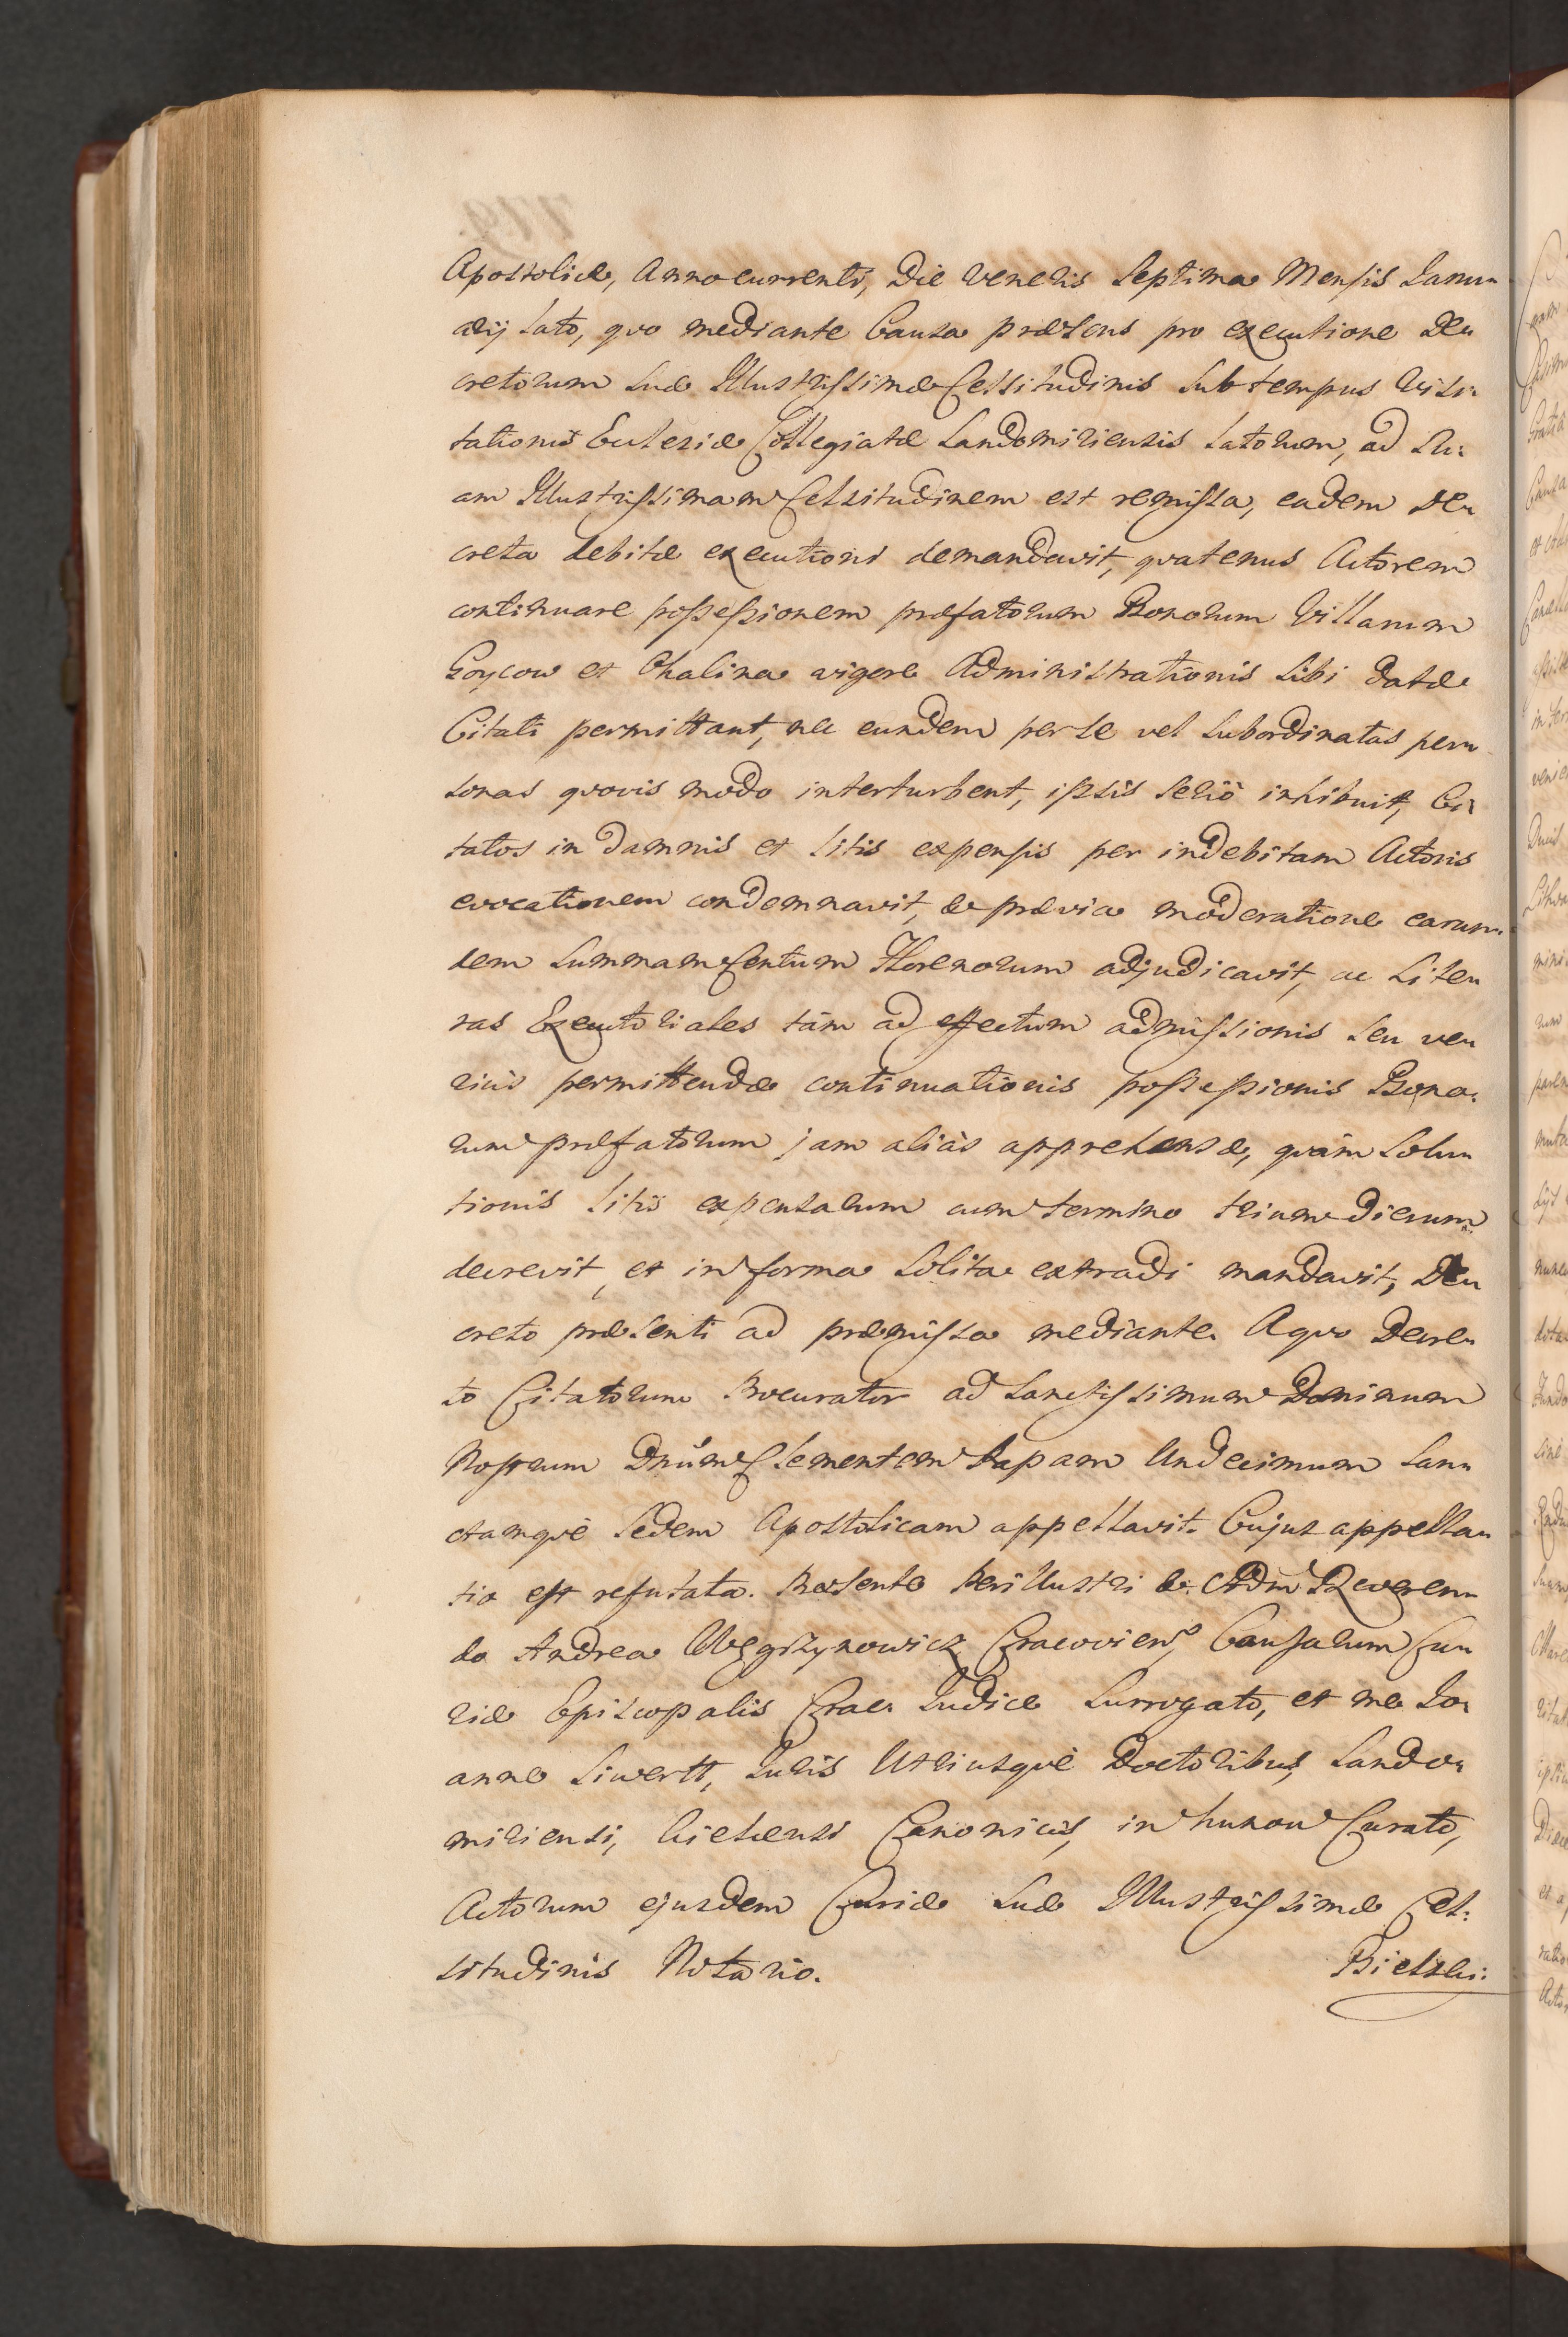 Apostolicæ, Anno currenti, Die Veneris Septima Mensis Janu„
arij Lato, quo mediante Causa præsens pro executione De„
cretorum Suæ Illustrissimæ Celsitudinis sub tempus Visi„
tationis Ecclesiæ Collegiatæ Sandomiriensis Latorum, ad Su„
am Illustrissimam Celsitudinem est remissa, eadem De„
creta debitæ executioni demandavit, quatenus Actorem
continuare possessionem præfatorum Bonorum Villarum
Goycow et Chalina vigore Administrationis sibi datæ
Citati permittant, nec eundem per se vel subordinatas per„
sonas quovis modo interturbent, ipsis seriò inhibuit, Ci„
tatos in damnis et litis expensis per indebitam Actoris
evocationem condemnavit, & prævia moderatione earun„
dem Summam Centum Florenorum adjudicavit, ac Lite„
ras Executoriales tàm ad effectum admissionis seu ve„
rius permittendæ continuationis possessionis Bono„
rum præfatorum jam aliàs apprehensæ, quàm solu„
tionis litis expensarum cum termino trium dierum
decrevit, et in forma solita extradi mandavit, De„
creto præsenti ad præmissa mediante. A quo Decre„
to Citatorum Procurator ad Sanctissimum Dominum
Nostrum Dnum Clementem Papam Undecimum San„
ctamquè Sedem Apostolicam appellavit. Cujus appella„
tio est refutata. Præsente Perillustri & Adm Reveren„
do Andrea Węgrzynowicz Cracovien, Causarum Cu„
riæ Episcopalis Crac. Judice Surrogato, et me Jo„
anne Siwertt, Juris Utriusquè Doctoribus, Sando„
miriensi, Kielcensi Canonicis, in Curato,
Actorum ejusdem Curiæ Suæ Illustrissimæ Cel„
situdinis Notario.
Bielski: